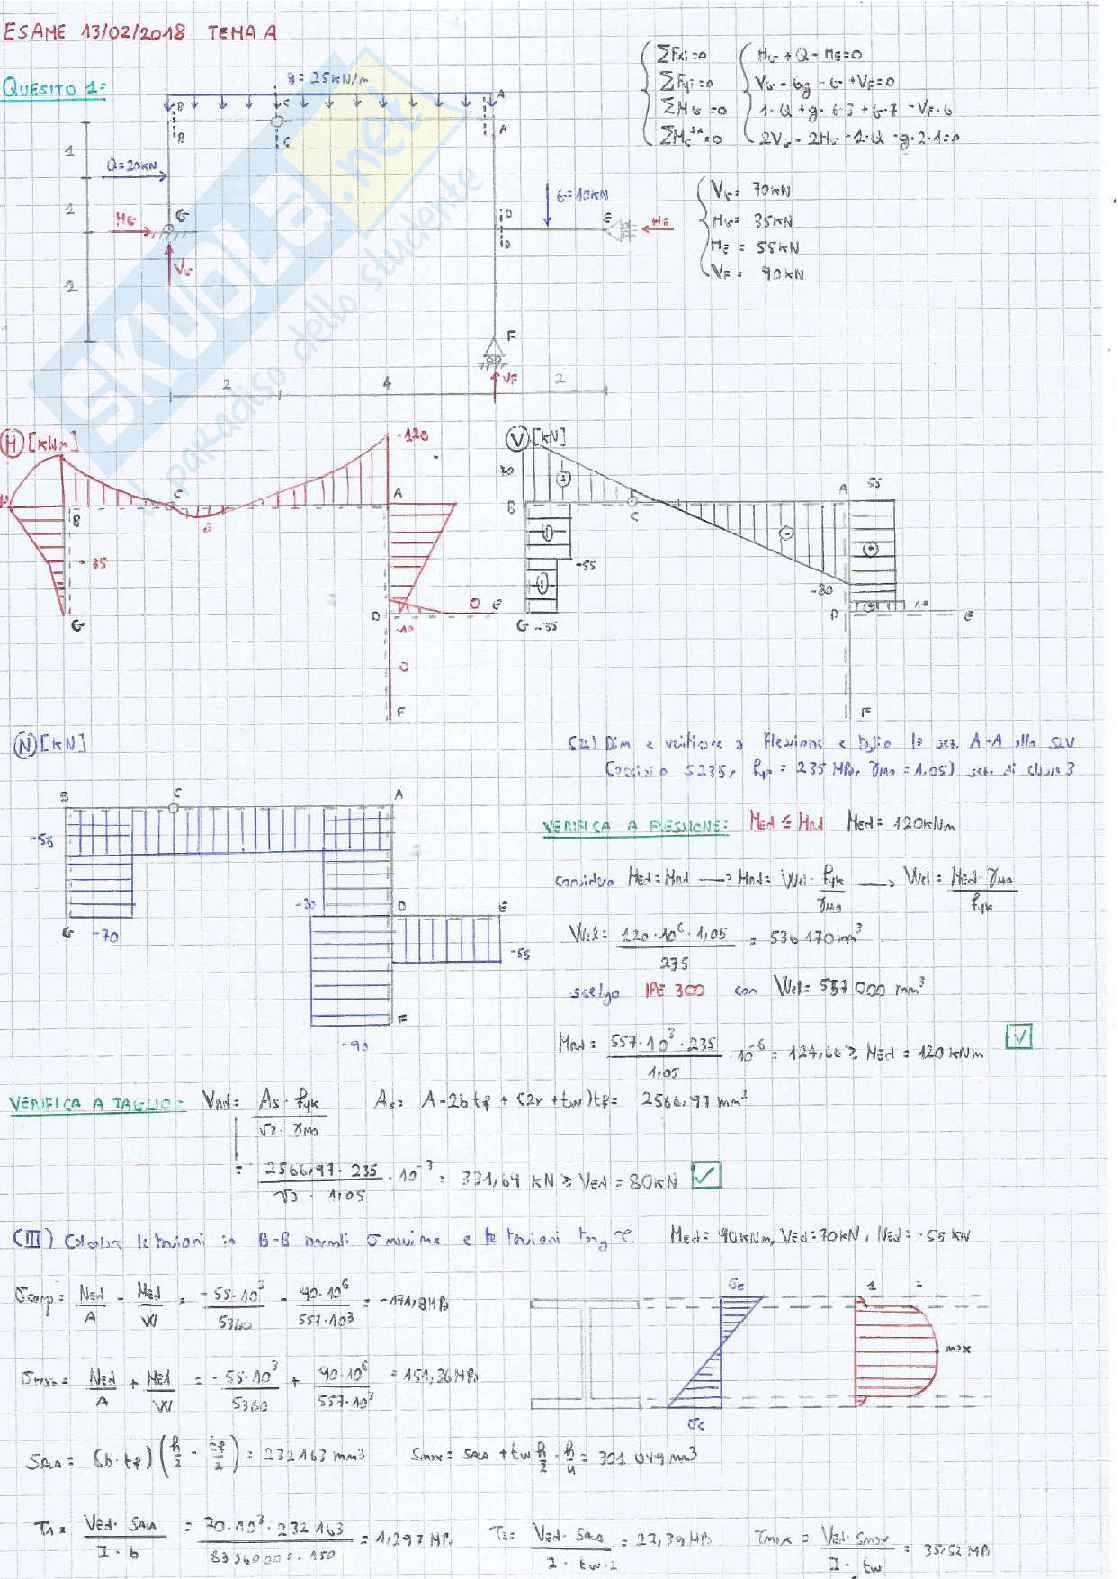 ESAME 13/02/2018 TEMA A
QUESITO 1:
q = 25 kN/m
B C A
B C A
Q = 20 kN
1
1
2
G
HG
VG
G = 10 kN
D
D
E
HE
F
VF
2 4 2
ΣFxi = 0
ΣFyi = 0
ΣMG = 0
ΣMc = 0
HG + Q - HE = 0
VG - 6q - G + VF = 0
1·Q + q·6·3 + G·7 - VF·6
2VG - 2HG - 1·Q - q·2·1 = 0
VG = 70 kN
HG = 35 kN
HE = 55 kN
VF = 90 kN
M [kNm]
-120
C
A
B
-35
G
D
-10
0
E
0
F
V [kN]
70
B
C
A
55
-55
-80
G -35
D
10
E
F
N [kN]
B C A
-55
-80
D E
G -70
-55
F
-90
(II) Dim e verificare a flessione e taglio la sez. A-A allo SLV
(acciaio S235, fyk = 235 MPa, γM0 = 1,05) sez. di classe 3
VERIFICA A FLESSIONE: MEd ≤ MRd MEd = 120 kNm
considero MEd = MRd → MRd = Wel · fyk / γM0 → Wel = MEd · γM0 / fyk
Wel = 120·10^6 · 1,05 / 235 = 536170 mm³
scelgo IPE 300 con Wel = 557 000 mm³
MRd = 557·10³·235 / 1,05 · 10^-6 = 124,66 ≥ MEd = 120 kNm
VERIFICA A TAGLIO: VRd = As · fyk / √3 · γM0 As = A - 2b tf + (2r + tw) tf = 2566,97 mm²
= 2566,97 · 235 / √3 · 1,05 · 10^-3 = 331,69 kN ≥ VEd = 80 kN
(III) Calcolare le tensioni in B-B normali σ massima e le tensioni tang τ. MEd = 90 kNm, VEd = 70 kN, NEd = -55 kN
σsup = NEd / A - MEd / W = -55·10³ / 5380 - 90·10^6 / 557·10³ = -171,8 MPa
= NEd / A + MEd / W = -55·10³ / 5380 + 90·10^6 / 557·10³ = 151,36 MPa
σc
1
max
= (b·tf) (h/2 - tf/2) = 232163 mm³ Smax = + tw h/2 · h/4 = 301 049 mm³
τ1 = VEd · / I · b = 70·10³·232163 / 83560000 · 150 = 1,297 MPa
τ2 = VEd · / I · tw · = 27,39 MPa
τmax = VEd · Smax / I · tw = 35,52 MPa
SKUOLA.net
il paradiso dello studente